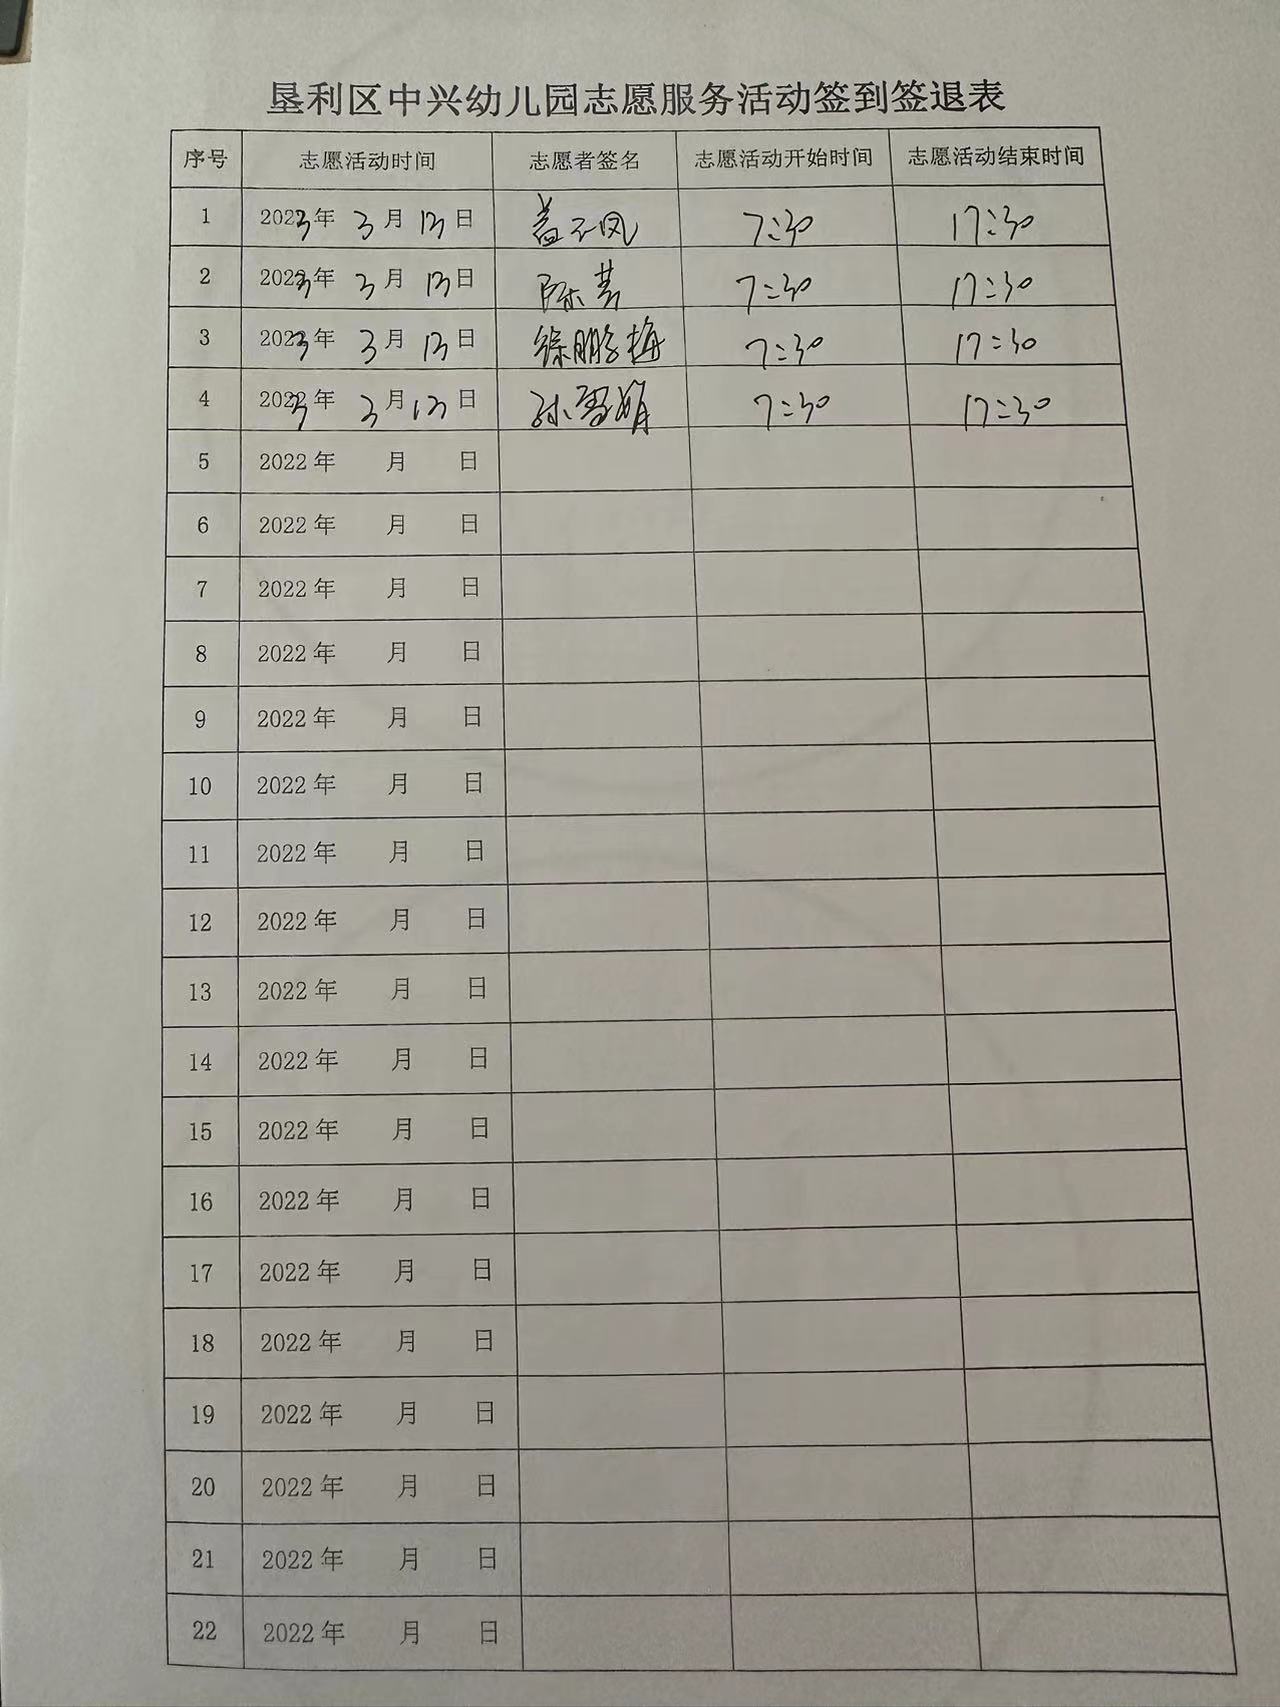 垦利区中兴幼儿园志愿服务活动签到签退表
序号 志愿活动时间 志愿者签名 志愿活动开始时间 志愿活动结束时间
1 2023年 3月 13日 盖玉凤 7:30 17:30
2 2023年 3月 13日 陈芸 7:30 17:30
3 2023年 3月 13日 徐鹏梅 7:30 17:30
4 2023年 3月 13日 孙雪娟 7:30 17:30
5 2022年 月 日
6 2022年 月 日
7 2022年 月 日
8 2022年 月 日
9 2022年 月 日
10 2022年 月 日
11 2022年 月 日
12 2022年 月 日
13 2022年 月 日
14 2022年 月 日
15 2022年 月 日
16 2022年 月 日
17 2022年 月 日
18 2022年 月 日
19 2022年 月 日
20 2022年 月 日
21 2022年 月 日
22 2022年 月 日